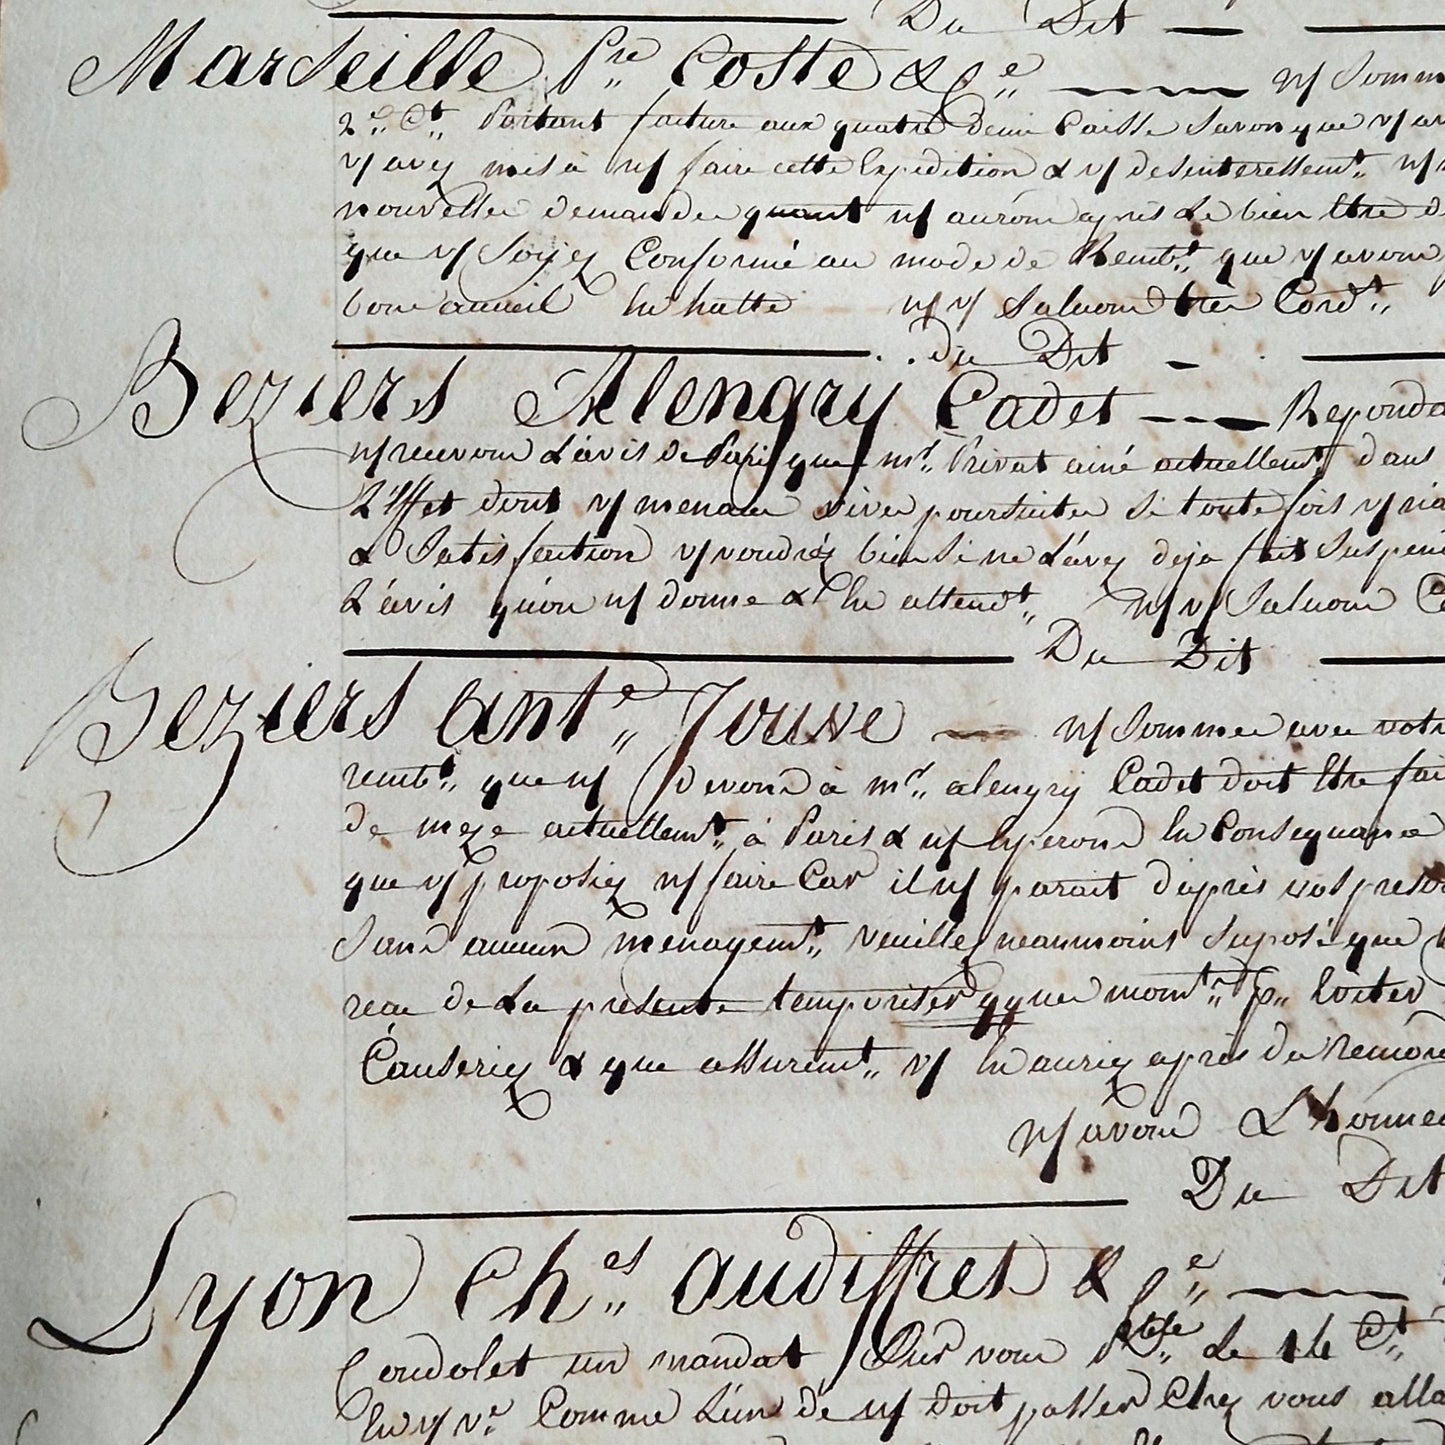 Du Dit
Marseille Pre Coste & Ce n/ Somm
2e Ct Portant facture aux quatre demi Caisse Savon que v/ av
v/ avez mis à n/ faire cette Expedition & v/ desinteressemt n/
nouvelles demandes quant n/ aurons apris Le bien Etre d
que v/ Soyez Conformé au mode de Rembt que v/ avons
bon acueil En hatte n/ v/ Saluons tres Cordt
du Dit
Beziers Alengry Cadet Reponda
n/ recevons L'avis de Paris que mr Privat ainé actuellemt dans
L'Effet dont v/ menace vives poursuites Si toute fois v/ n'a
& Satisfaction v/ voudréz bien Si ne L'avez deja fait Suspen
L'avis qu'on n/ donne & En attendt n/ v/ Saluons Co
Du Dit
Beziers Ante Jouve n/ Sommes avec votr
rembt que n/ devons à mr alengry Cadet doit Etre fai
de meze actuellemt à Paris & n/ Esperons En Consequance
que v/ proposiez n/ faire Car il n/ parait d'aprés vos pres
Sans aucun menagemt veuillez neanmoins Suposé que
reçu de La presente temporiser qques momts pr Eviter
Causeriez & que assuremt v/ En auriez aprés du Remor
n/ avons L'honne
Du Dit
Lyon Ches Audiffret & Ce
Coudolet un mandat Sur vous de 14 Ct
En v/ ve Comme L'un de n/ doit passer Chez vous alla